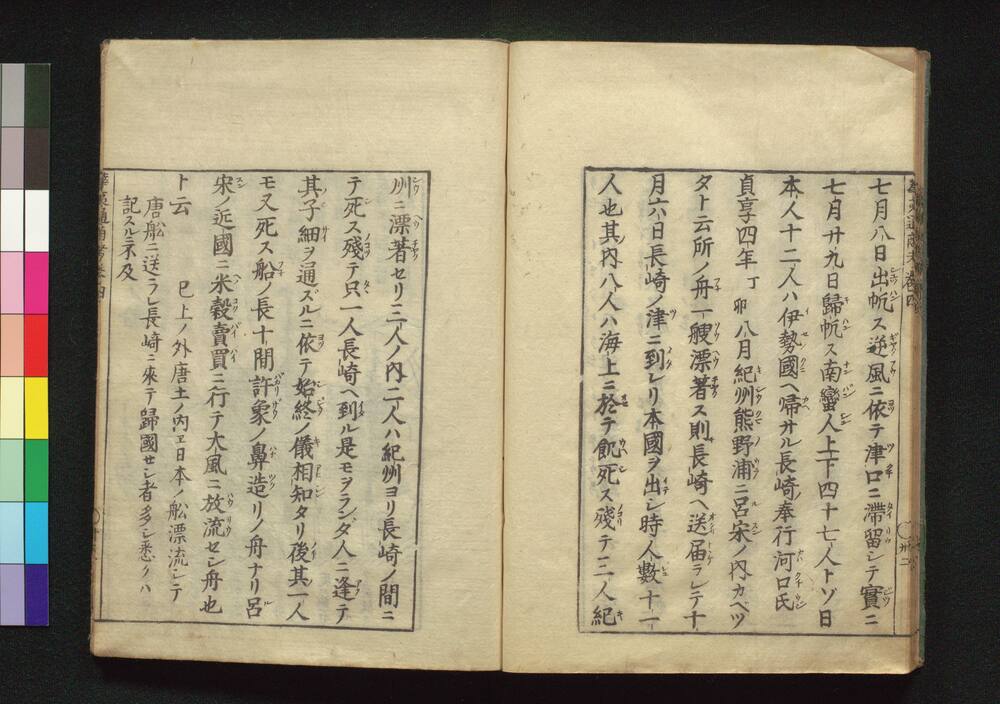 七月八日出帆ス逆風ニ依テ津口ニ滞留シテ實ニ
七月廿九日歸帆ス南蠻人上下四十七人トゾ日
本人十二人ハ伊勢國ヘ帰サル長崎奉行河口氏
貞享四年丁卯八月紀州熊野浦ニ呂宋ノ内カベツ
タト云所ノ舟一艘漂著ス則長崎ヘ送届ラレテ十
月六日長崎ノ津ニ到レリ本國ヲ出シ時人數十一
人也其内八人ハ海上ニ於テ飢死ス残テ三人紀
州ニ漂著セリ三人ノ内二人ハ紀州ヨリ長崎ノ間ニ
テ死ス殘テ只一人長崎ヘ到ル是モヲランダ人ニ逢テ
其子細ヲ通ズルニ依テ始終ノ儀相知タリ後其一人
モ又死ス船ノ長十間許象ノ鼻造リノ舟ナリ呂
宋ノ近國ニ米穀賣買ニ行テ大風ニ放流セシ舟也
ト云 已上ノ外唐土ノ内ヱ日本ノ舩漂流シテ
唐舩ニ送ラレ長崎ニ來テ歸國セシ者多シ悉クハ
記スルニ不及